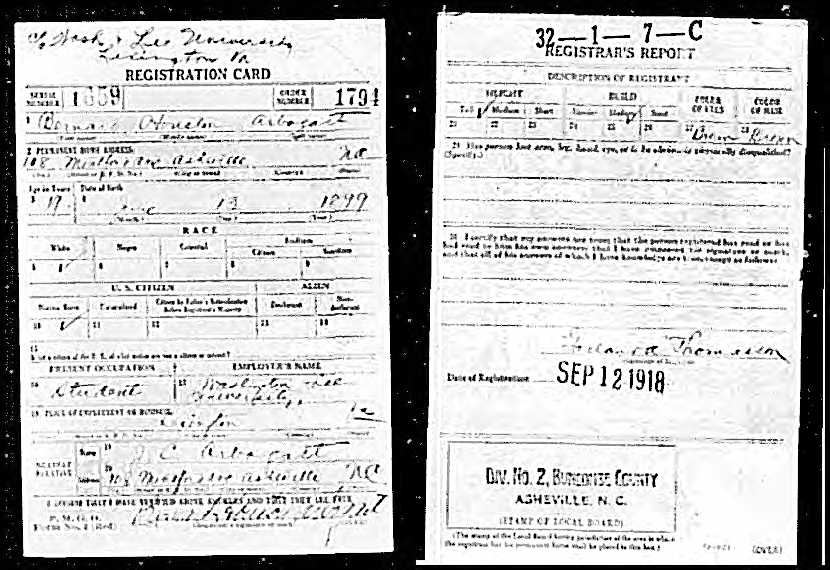 c/o Wash & Lee University
Lexington Va
REGISTRATION CARD
SERIAL NUMBER 1659 ORDER NUMBER 1794
1 Bernard Houston Arbogast
2 PERMANENT HOME ADDRESS:
108 Asheville NC
Age in Years Date of Birth
3 19 4 13 1899
(Month) (Day) (Year)
RACE
White Negro Oriental Indian
Citizen Noncitizen
5 6 7 8 9
U. S. CITIZEN ALIEN
Native Born Naturalized Citizen by Father's Naturalization Before Registrant's Majority Declarant Non-declarant
10 11 12 13 14
15
If not a citizen of the U. S., of what nation are you a citizen or subject?
PRESENT OCCUPATION EMPLOYER'S NAME
16 Student 17 Washington & Lee
University
18 PLACE OF EMPLOYMENT OR BUSINESS:
Va
NEAREST RELATIVE Name 19 J C Arbogast
Address 20 108 Asheville NC
I AFFIRM THAT I HAVE VERIFIED ABOVE ANSWERS AND THAT THEY ARE TRUE
P. M. G. O.
Form No. 1 (Red) Bernard Houston Arbogast
32—1—7—C
REGISTRAR'S REPORT
DESCRIPTION OF REGISTRANT
HEIGHT BUILD COLOR OF EYES COLOR OF HAIR
Tall Medium Short Slender Medium Stout
21 22 23 24 25 26 27 Brown 28 Brown
29 Has person lost arm, leg, hand, eye, or is he obviously physically disqualified?
(Specify.)
30 I certify that my answers are true; that the person registered has read or has
had read to him his own answers; that I have witnessed his signature or mark,
and that all of his answers of which I have knowledge are true, except as follows:
Thomasson
Date of Registration SEP 12 1918
DIV. No. 2, BUNCOMBE COUNTY
ASHEVILLE, N. C.
(STAMP OF LOCAL BOARD)
(The stamp of the Local Board having jurisdiction of the area in which
the registrant has his permanent home shall be placed in this box.)
(OVER)